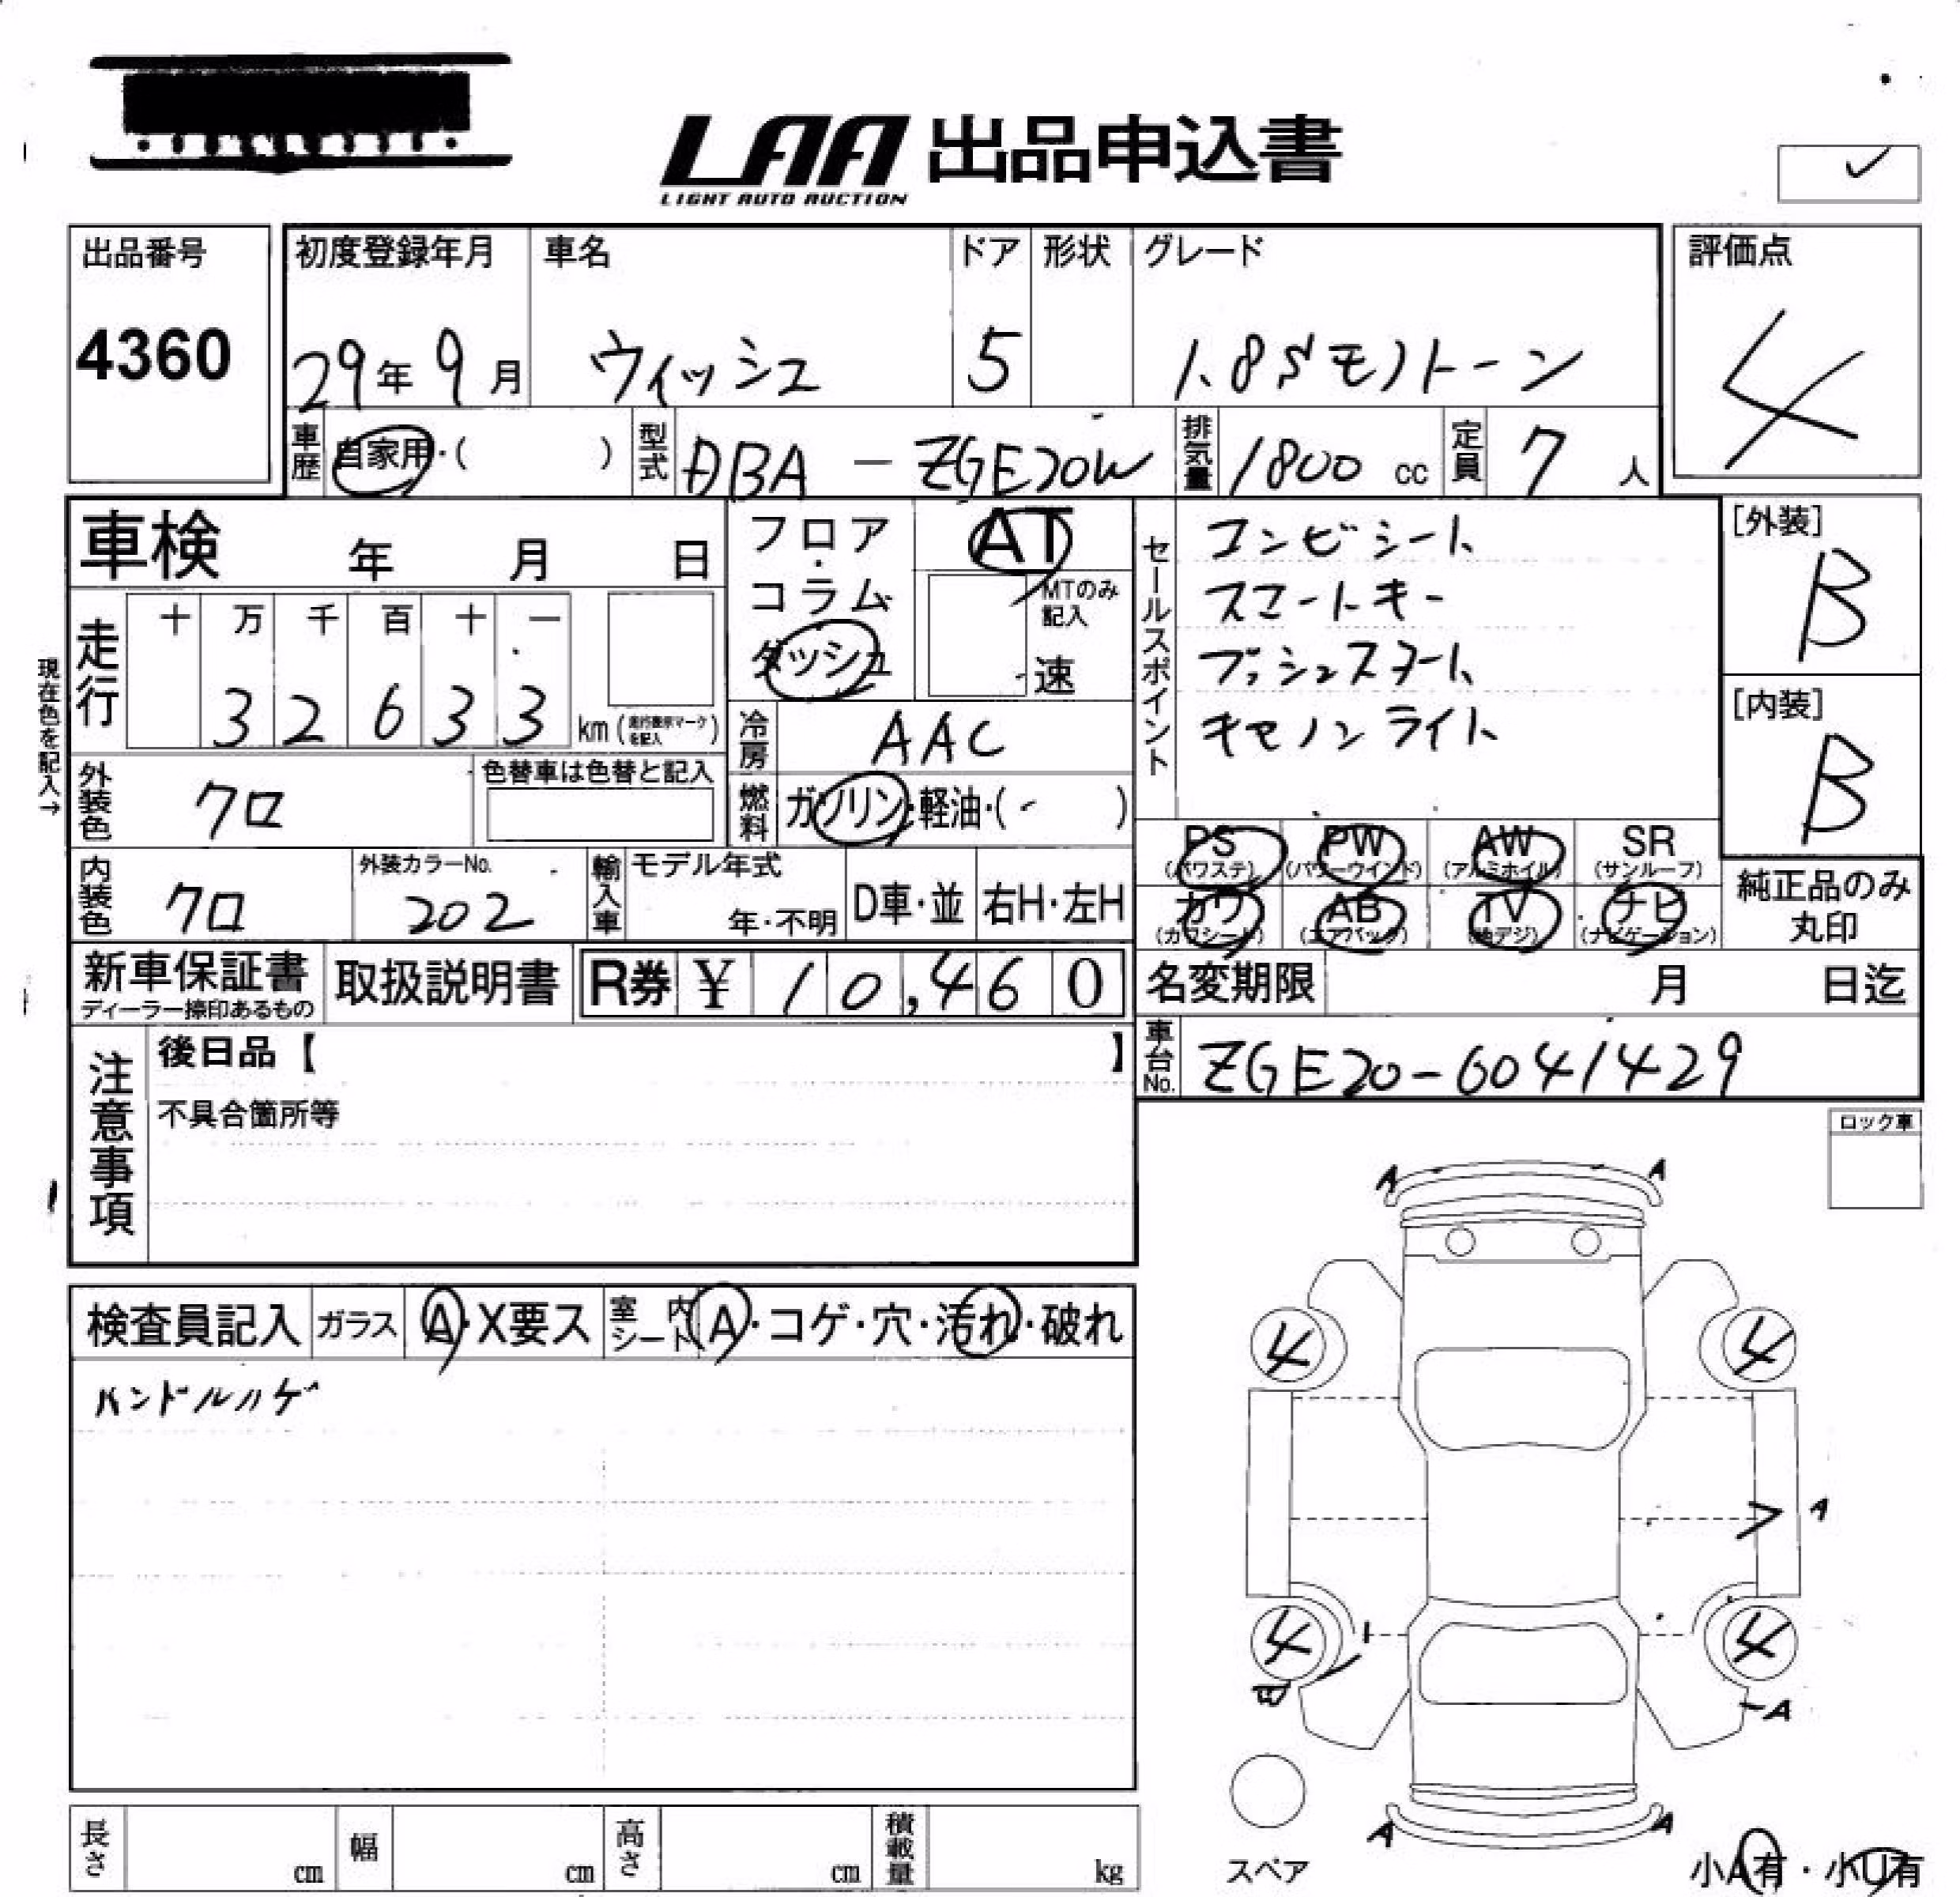 LAA 出品申込書
LIGHT AUTO AUCTION
出品番号
4360
初度登録年月
29年 9月
車名
ウィッシュ
ドア
5
形状
グレード
1.8S モノトーン
評価点
4
車歴 自家用・( )
型式 DBA - ZGE20W
排気量 1800 cc
定員 7 人
車検 年 月 日
フロア・コラム
ダッシュ
AT
MTのみ記入
速
セールスポイント
コンビシート
スマートキー
プッシュスタート
キセノンライト
[外装]
B
[内装]
B
現在色を記入→
走行
十 万 千 百 十 一
3 2 6 3 3 km
冷房 AAC
外装色 クロ
色替車は色替と記入
燃料 ガソリン・軽油・( )
内装色 クロ
外装カラーNo.
202
輸入車
モデル年式
年・不明
D車・並
右H・左H
PS
(パワステ)
PW
(パワーウインド)
AW
(アルミホイル)
SR
(サンルーフ)
カワ
(カワシート)
AB
(エアバック)
TV
(地デジ)
ナビ
(ナビゲーション)
純正品のみ
丸印
新車保証書
ディーラー捺印あるもの
取扱説明書
R券 ¥ 10,460
名変期限 月 日迄
車台No. ZGE20-6041429
注意事項
後日品【 】
不具合箇所等
ロック車
検査員記入
ガラス A・X要ス
室内シート A・コゲ・穴・汚れ・破れ
ハンドルハゲ
A A
4 4
A
4 4
A
A A
スペア
小A有・小U有
長さ cm
幅 cm
高さ cm
積載量 kg